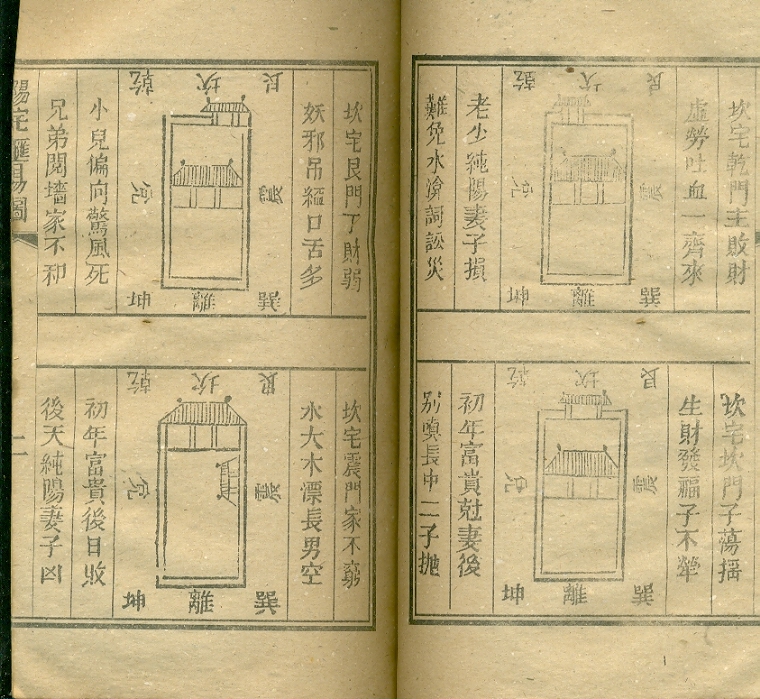 坎宅乾門主敗財
虛勞吐血一齊來
乾 坎 艮
兌 震
坤 離 巽
老少純陽妻子損
難免水瀹詞訟災
坎宅坎門子蕩揺
生財發福子不犖
乾 坎 艮
兌 震
坤 離 巽
初年富貴尅妻後
別奠長中二子拋
坎宅艮門丁財弱
妖邪吊縊口舌多
乾 坎 艮
兌 震
坤 離 巽
小兒偏向驚風死
兄弟鬩墻家不和
坎宅震門家不窮
水大木漂長男空
乾 坎 艮
兌 震
坤 離 巽
初年富貴後日敗
後天純陽妻子凶
陽宅匯易圖
二